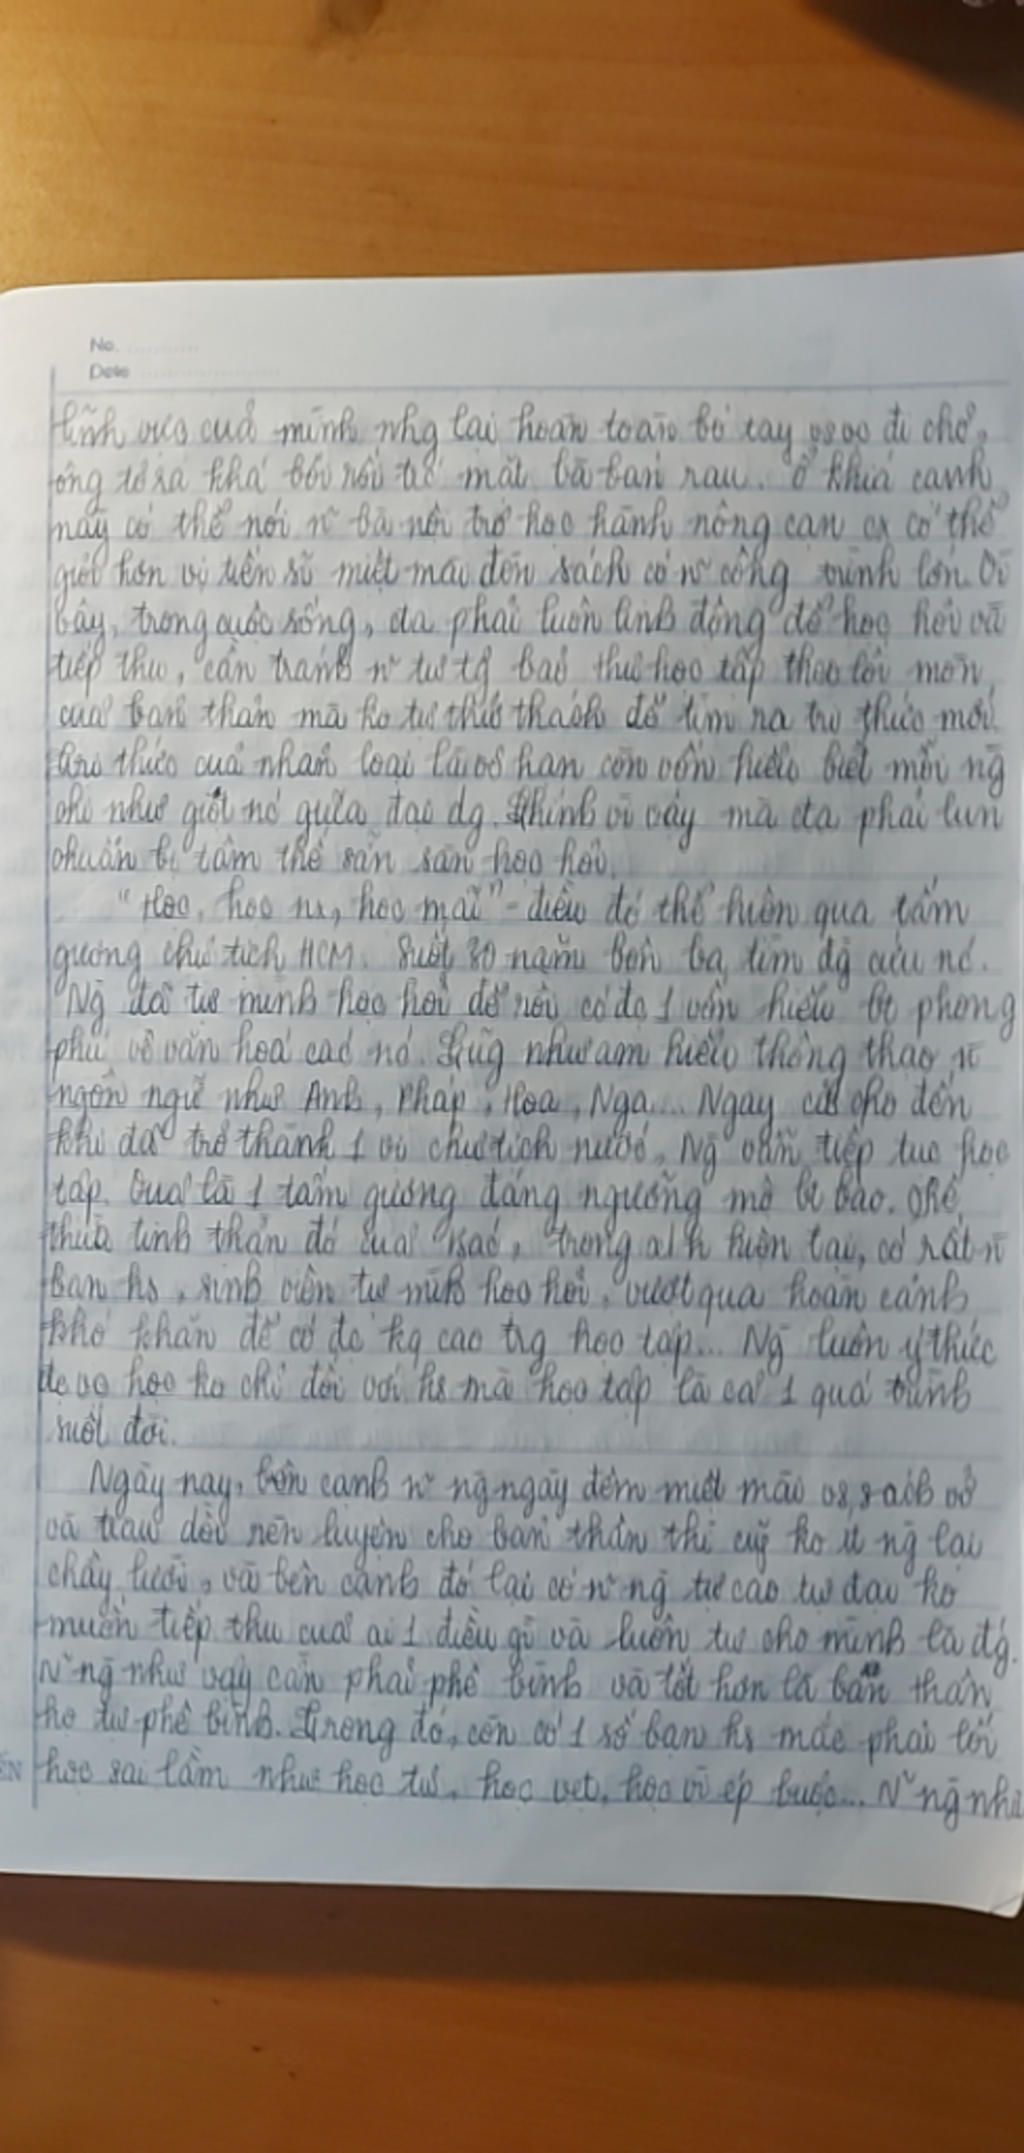 No. ............
Date .....................
lĩnh vực của mình nhg lại hoàn toàn bó tay vs vc đi chợ,
ông tỏ ra khá bối rối trc mặt bà bán rau. Ở khía cạnh
này có thể nói n~ bà nội trợ học hành nông cạn cx có thể
giỏi hơn vị tiến sĩ miệt mài đèn sách có n~ công trình lớn. Vì
vậy, trong cuộc sống, ta phải luôn linh động để học hỏi và
tiếp thu, cần tránh n~ tư tg bảo thủ học tập theo lối mòn
của bản thân mà ko tự thử thách để tìm ra tri thức mới.
Tri thức của nhân loại là vô hạn còn vốn hiểu biết mỗi ng
chỉ như giọt nc giữa đại dg. Chính vì vậy mà ta phải lun
chuẩn bị tâm thế sẵn sàng học hỏi.
"Học, học nx, học mãi" - điều đó thể hiện qua tấm
gương chủ tịch HCM. Suốt 30 năm bôn ba tìm đg cứu nc.
Ng đã tự mình học hỏi để rồi có đc 1 vốn hiểu bt phong
phú về văn hoá các nc. Cũg như am hiểu thông thạo n
ngôn ngữ như Anh, Pháp, Hoa, Nga... Ngay cả cho đến
khi đã trở thành 1 vị chủ tịch nước, Ng vẫn tiếp tục học
tập. Quả là 1 tấm gương đáng ngưỡng mộ bt bao. Kế
thừa tinh thần đó của Bác, trong xh hiện tại, có rất n
bạn hs, sinh viên tự mình học hỏi, vượt qua hoàn cảnh
khó khăn để có đc kq cao trg học tập... Ng luôn ý thức
đc vc học ko chỉ đối với hs mà học tập là cả 1 quá trình
suốt đời.
Ngày nay, bên cạnh n~ ng ngày đêm miệt mài vs sách vở
và trau dồi rèn luyện cho bản thân thì cũg ko ít ng lại
chây lười, và bên cạnh đó lại có n~ ng tự cao tự đại ko
muốn tiếp thu của ai 1 điều gì và luôn tự cho mình là đúg.
N~ ng như vậy cần phải phê bình và tốt hơn là bản thân
họ tự phê bình. Trong đó, còn có 1 số bạn hs mắc phải lối
học sai lầm như học tủ, học vẹt, học vì ép buộc... N~ ng như